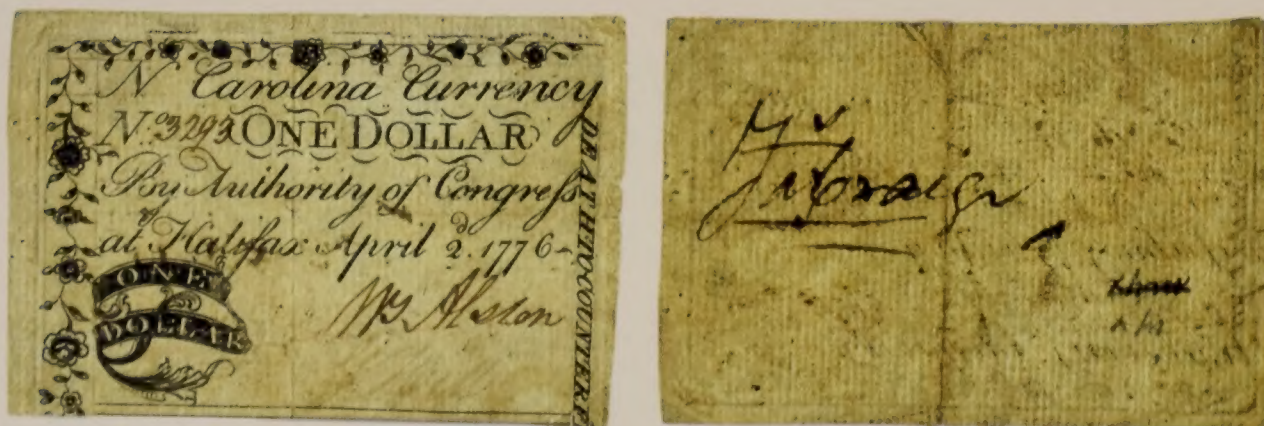 N Carolina Currency
No. 3293 ONE DOLLAR
By Authority of Congress
at Halifax April 2d. 1776
ONE
DOLLAR
DEATH TO COUNTERF
Alston